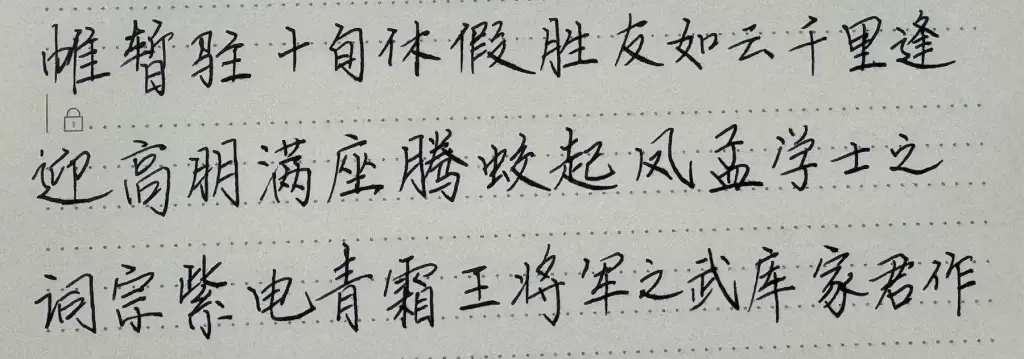 帷暂驻十旬休假胜友如云千里逢
迎高朋满座腾蛟起凤孟学士之
词宗紫电青霜王将军之武库家君作